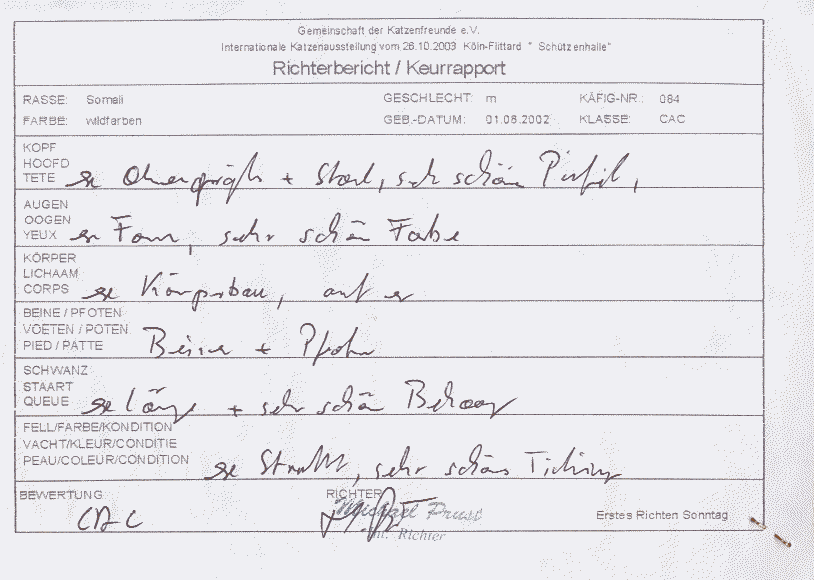 Gemeinschaft der Katzenfreunde e.V.
Internationale Katzenausstellung vom 26.10.2003 Köln-Flittard " Schützenhalle"
Richterbericht / Keurrapport
RASSE: Somali GESCHLECHT: m KÄFIG-NR.: 084
FARBE: wildfarben GEB.-DATUM: 01.08.2002 KLASSE: CAC
KOPF
HOOFD
TETE
+ schön
AUGEN
OOGEN
YEUX
Form, sehr schön Farbe
KÖRPER
LICHAAM
CORPS
Körperbau,
BEINE / PFOTEN
VOETEN / POTEN
PIED / PATTE
Beine + Pfoten
SCHWANZ
STAART
QUEUE
Länge + sehr schön
FELL/FARBE/KONDITION
VACHT/KLEUR/CONDITIE
PEAU/COLEUR/CONDITION
sehr schönes Ticking
BEWERTUNG
CAC
RICHTER
Michael Prust
Int. Richter
Erstes Richten Sonntag